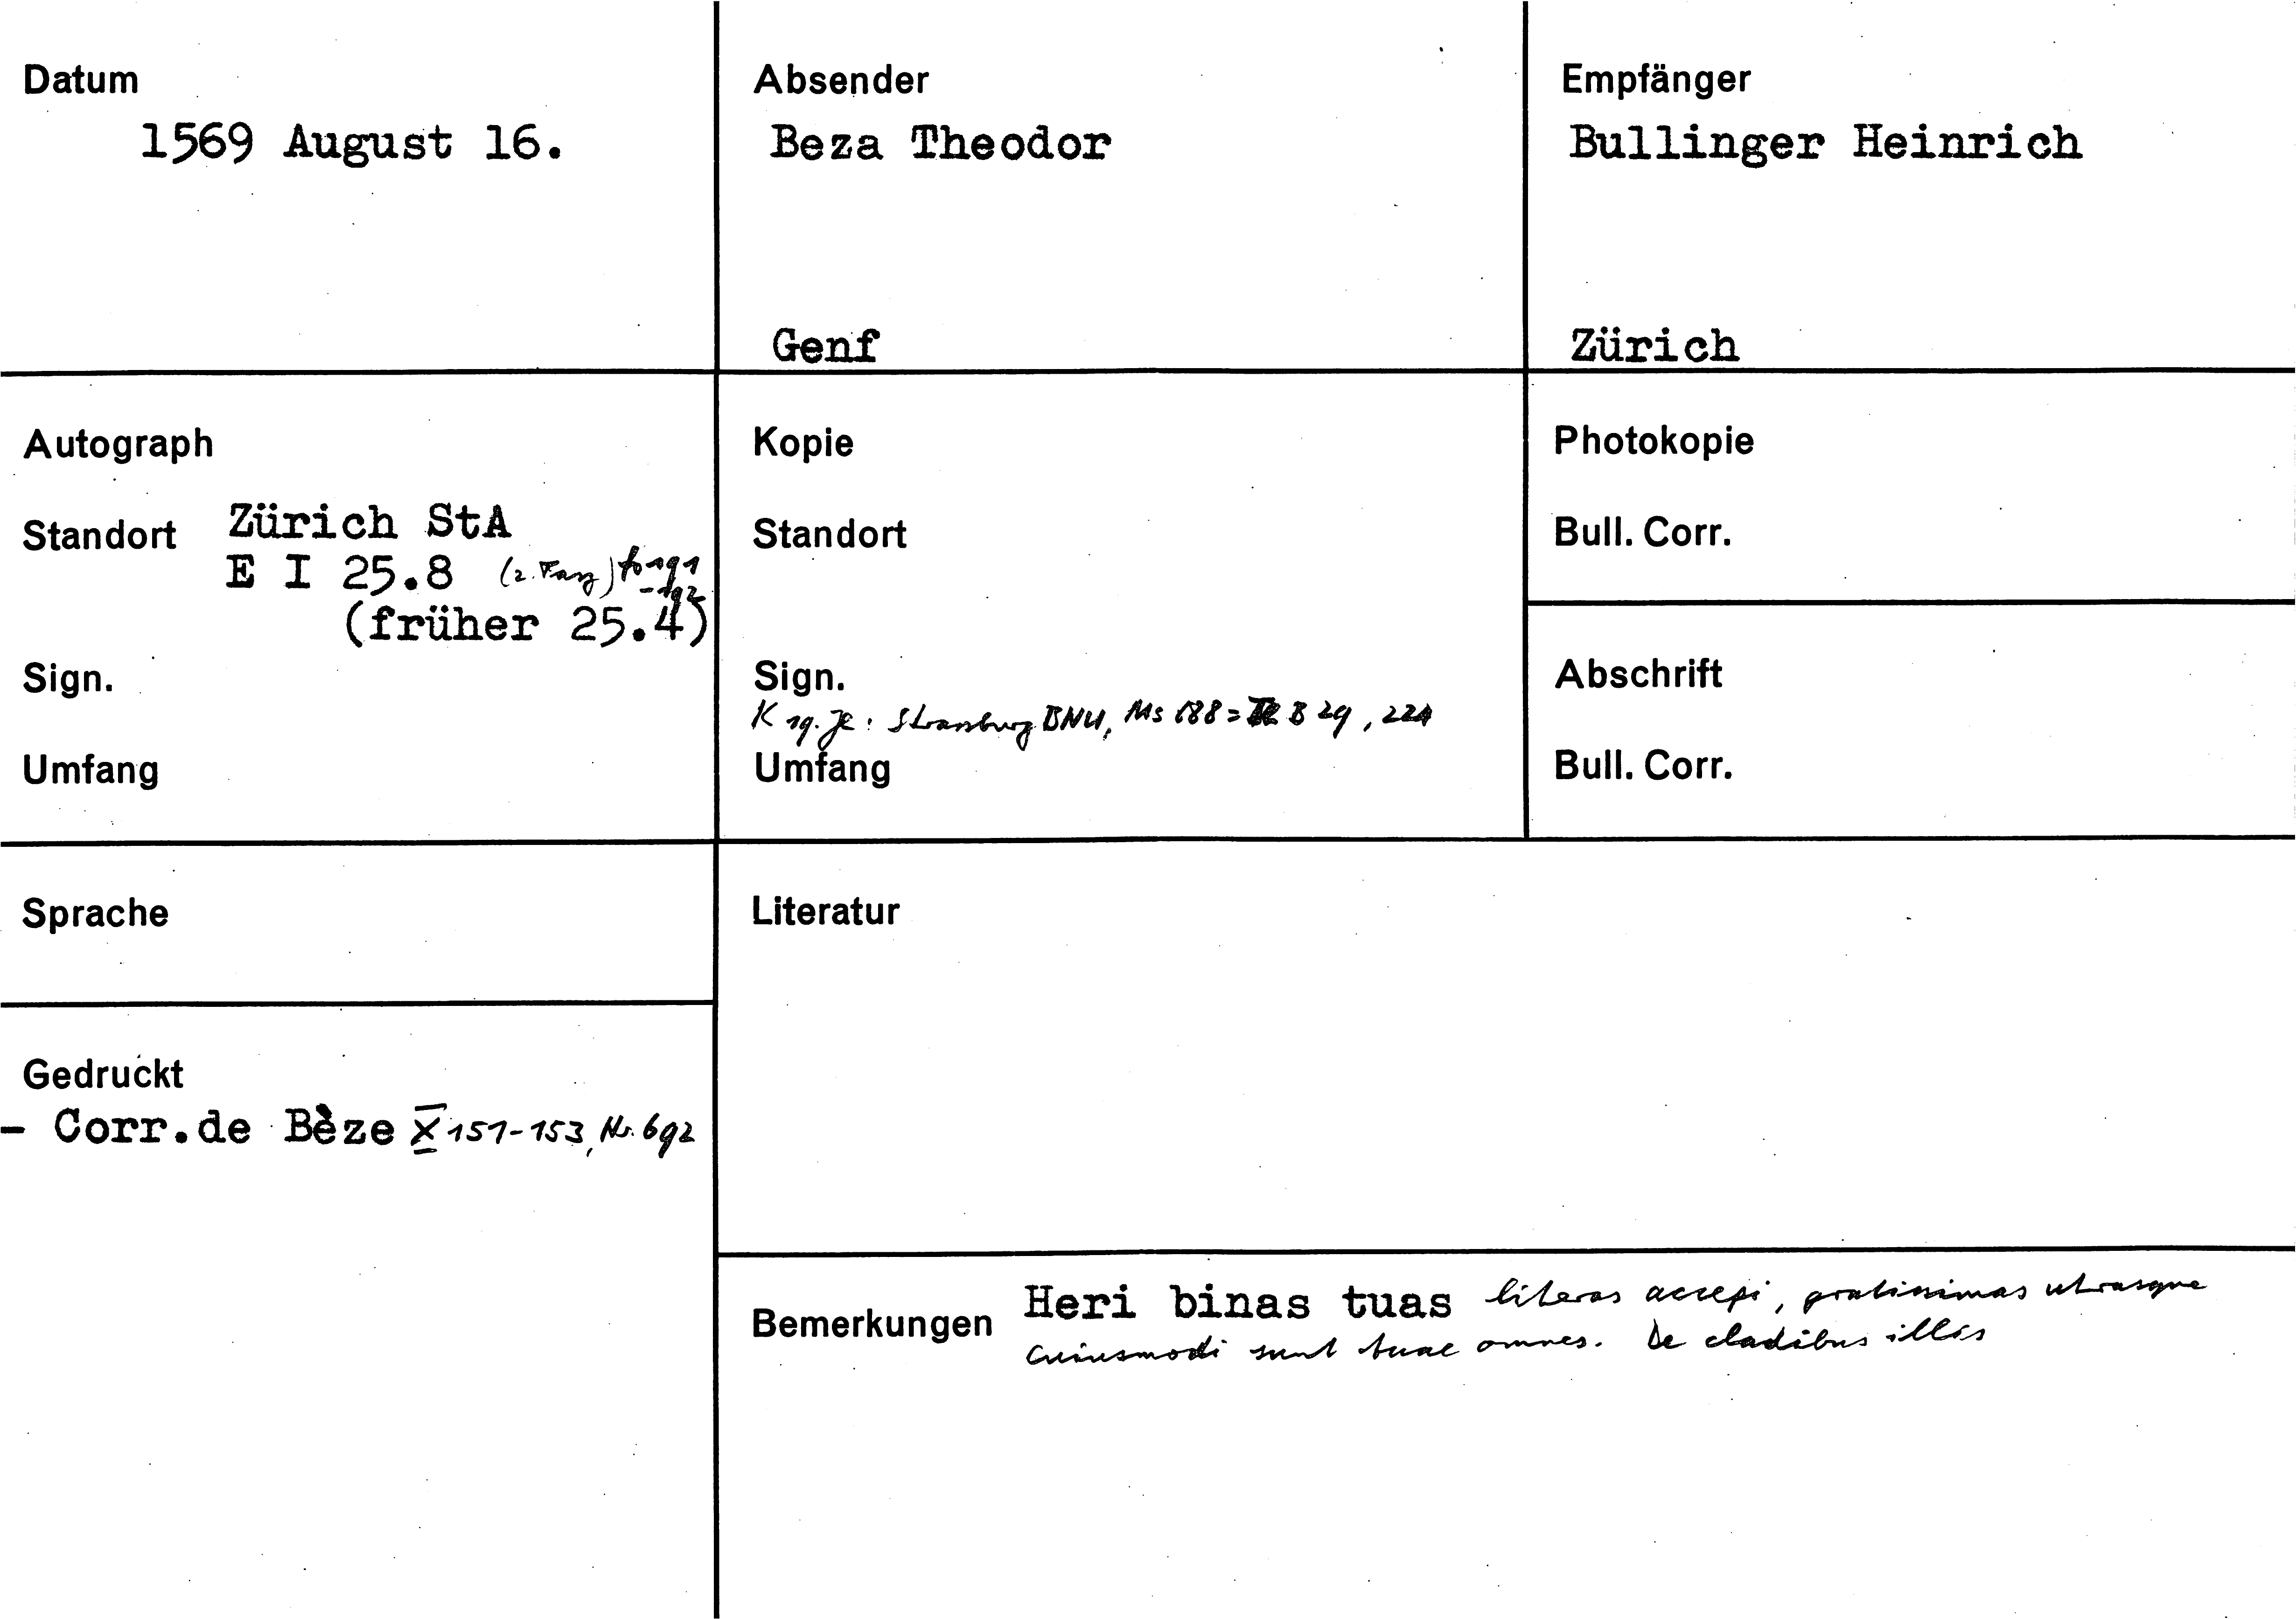 Datum
1569 August 16.
Absender
Beza Theodor
Genf
Empfänger
Bullinger Heinrich
Zürich
Autograph
Standort Zürich StA
E I 25.8 (2. Fasz) fo 191
-192
(früher 25.4)
Sign.
Umfang
Kopie
Standort
Sign.
K 19. Jh: Strassburg BNU, Ms 188 = B 29, 221
Umfang
Photokopie
Bull. Corr.
Abschrift
Bull. Corr.
Sprache
Gedruckt
- Corr.de Bèze X 151-153, Nr. 692
Literatur
Bemerkungen Heri binas tuas literas accepi, gratissimas utrasque
cuiusmodi sunt tuae omnes. De cladibus illis